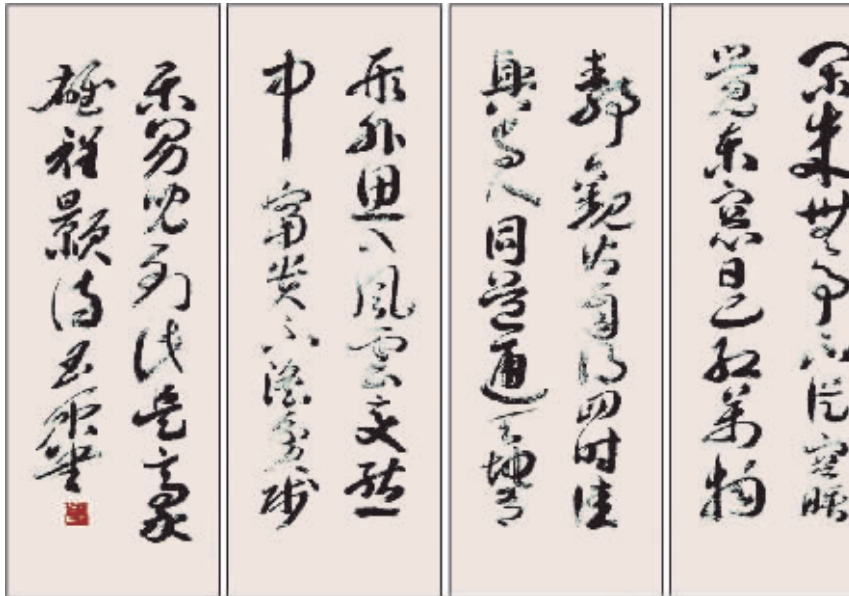 闲来無事不從容睡
觉东窗日已紅萬物
靜觀皆自得四时佳
興与人同道通天地有
形外思入風雲变態
中富贵不淫貧賤
乐男兒到此是豪
雄程颢诗